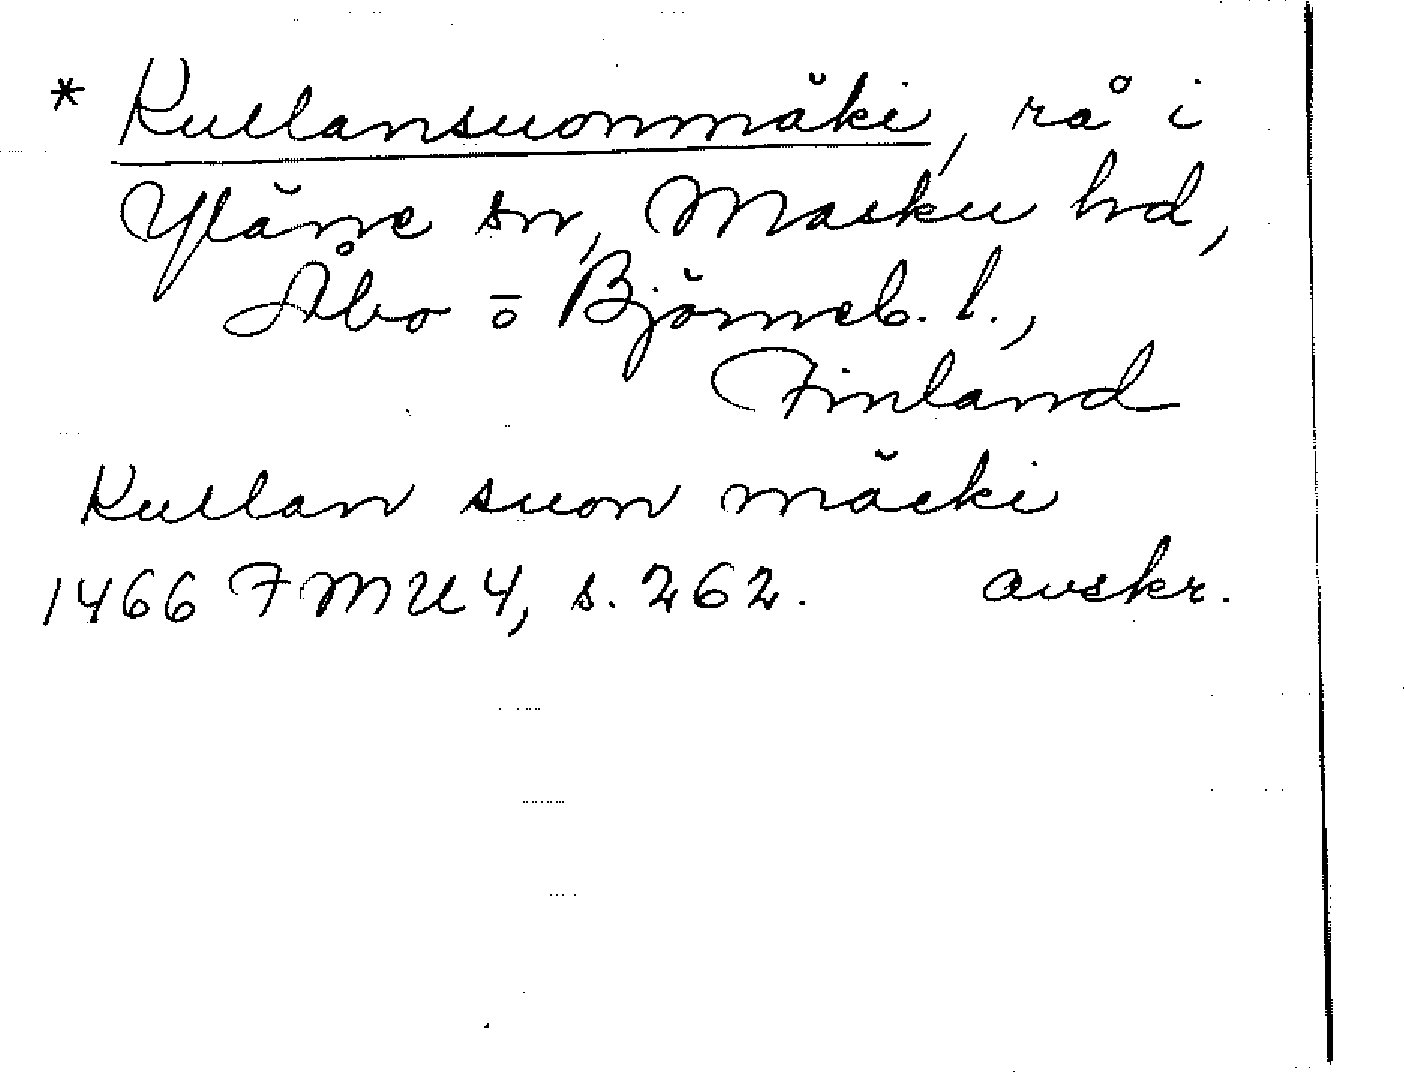 * Kullansuonmäki, rå i
Yläne sn, Masku hd,
Åbo o Björneb. l.,
Finland
Kullan suon mäcki
1466 FMU 4, s. 262. avskr.